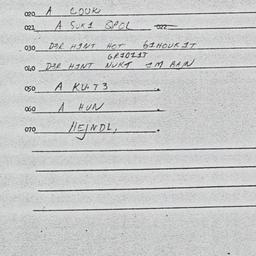 020 A COUK
021 A SUKI SPOL 022
030 DER HINT HOT 61HOUR IT
GR1012T
040 DER HINT NUKT IM RAJN
050 A KUT3
060 A HUN
070 HEJNDL,